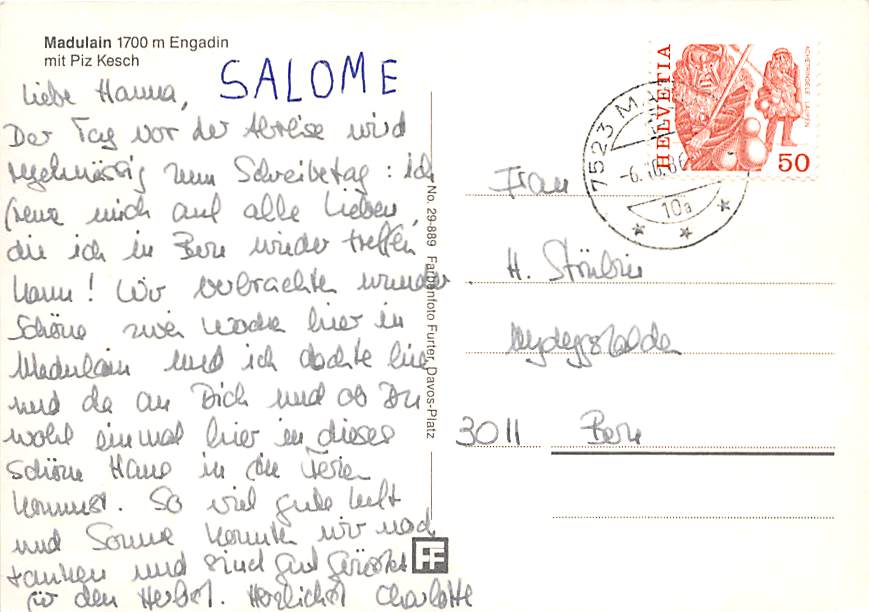 Madulain 1700 m Engadin
mit Piz Kesch
SALOME
Liebe Hanna,
Der Tag vor der Abreise wird
regelmässig zum Schreibetag: ich
freue mich auf alle Lieben,
die ich in Bern wieder treffen
kann! Wir verbrachten wunder
schöne zwei Wochen hier in
Madulain und ich dachte hie
und da an Dich und ob Du
wohl einmal hier in dieses
schöne Haus in die Ferien
kommst. So viel gute Luft
und Sonne konnten wir noch
tanken und sind gut gerüstet
für den Herbst. Herzlichst Charlotte
No. 29-889 Farbenfoto Furter, Davos-Platz
FF
HELVETIA
ACHETRINGELE LAUPEN
50
7523 MA
-6.10.86
10a
Frau
H. Stönbin
Nydeggstalden
3011 Bern